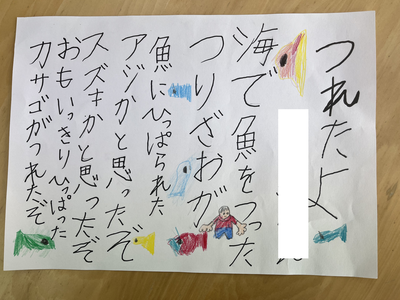 つれたよ
海で魚をつった
つりざおが
魚にひっぱられた
アジかと思ったぞ
スズキかと思ったぞ
おもいっきりひっぱった
カサゴがつれたぞ